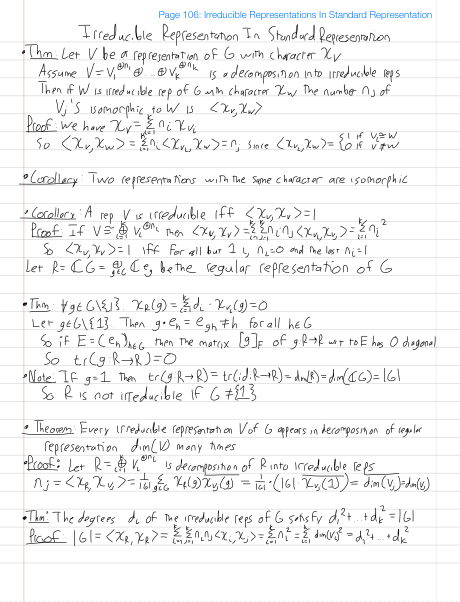 Page 106: Irreducible Representations In Standard Representation
Irreducible Representation In Standard Representation
• Thm: Let V be a representation of G with character χ_V
Assume V = V_1^{⊕n_1} ⊕ ... ⊕ V_k^{⊕n_k} is a decomposition into irreducible reps
Then if W is irreducible rep of G with character χ_W the number n_j of
V_j's isomorphic to W is <χ_V, χ_W>
Proof: we have χ_V = Σ_{i=1}^k n_i χ_{V_i}
So <χ_V, χ_W> = Σ_{i=1}^k n_i <χ_{V_i}, χ_W> = n_j since <χ_{V_i}, χ_W> = {1 if V_i ≅ W, 0 if V_i ≇ W
• Corollary: Two representations with the same character are isomorphic
• Corollary: A rep V is irreducible iff <χ_V, χ_V> = 1
Proof: If V ≅ ⊕_{i=1}^k V_i^{⊕n_i} then <χ_V, χ_V> = Σ_{i=1}^k Σ_{j=1}^k n_i n_j <χ_{V_i}, χ_{V_j}> = Σ_{i=1}^k n_i^2
So <χ_V, χ_V> = 1 iff for all but 1 i, n_i = 0 and the last n_i = 1
Let R = ℂG = ⊕_{g∈G} ℂe_g be the regular representation of G
• Thm: ∀g∈G\{1}: χ_R(g) = Σ_{i=1}^k d_i · χ_{V_i}(g) = 0
Let g∈G\{1}. Then g·e_h = e_{gh} ≠ h for all h∈G
So if E = (e_h)_{h∈G} then the matrix [g]_E of g: R→R wrt to E has 0 diagonal
So tr(g: R→R) = 0
• Note: If g=1 Then tr(g: R→R) = tr(id: R→R) = dim(R) = dim(ℂG) = |G|
So R is not irreducible if G ≠ {1}
• Theorem: Every irreducible representation V of G appears in decomposition of regular
representation dim(V) many times
• Proof: Let R = ⊕_{i=1}^k V_i^{⊕n_i} is decomposition of R into irreducible reps
n_j = <χ_R, χ_{V_j}> = 1/|G| Σ_{g∈G} χ_R(g) \overline{χ_{V_j}(g)} = 1/|G| · (|G| · \overline{χ_{V_j}(1)}) = \overline{dim(V_j)} = dim(V_j)
• Thm: The degrees d_i of the irreducible reps of G satisfy d_1^2 + ... + d_k^2 = |G|
Proof: |G| = <χ_R, χ_R> = Σ_{i=1}^k Σ_{j=1}^k n_i n_j <χ_i, χ_j> = Σ_{i=1}^k n_i^2 = Σ_{i=1}^k dim(V_i)^2 = d_1^2 + ... + d_k^2